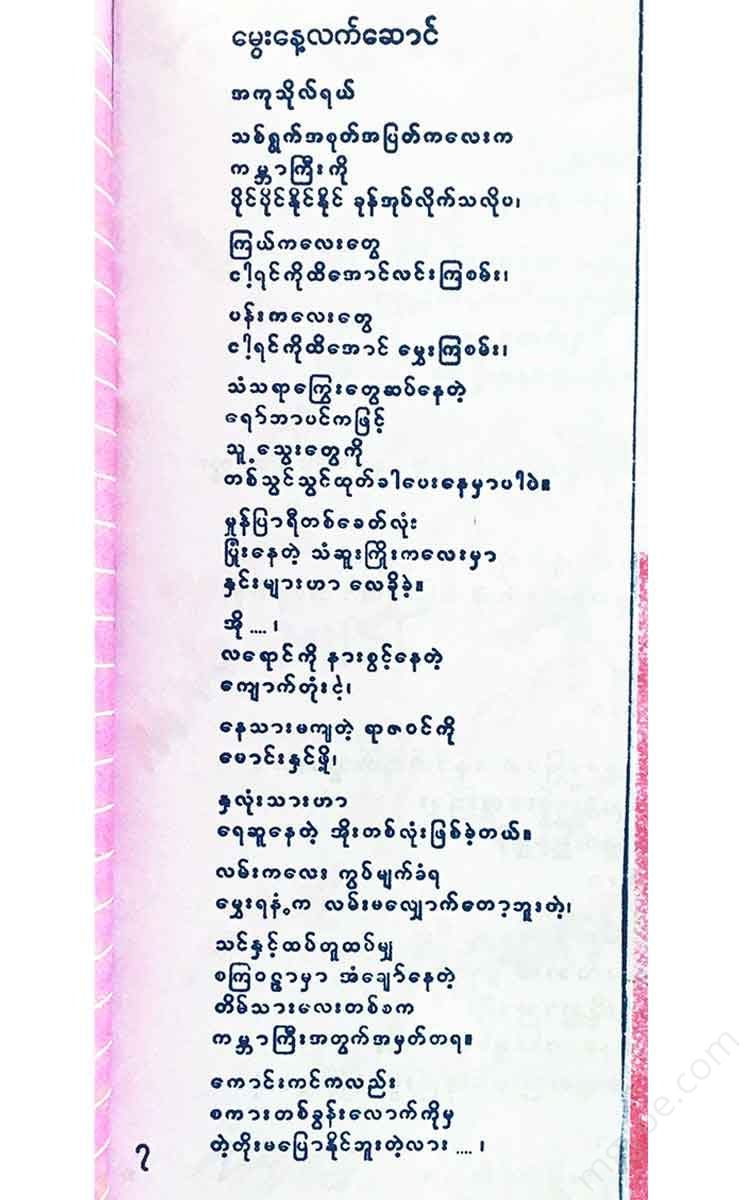 မွေးနေ့လက်ဆောင်
အကုသိုလ်ရယ်
သစ်ရွက်အစုတ်အပြတ်ကလေးက
ကမ္ဘာကြီးကို
ပိုင်ပိုင်နိုင်နိုင် ခုန်အုပ်လိုက်သလိုပ၊
ကြယ်ကလေးတွေ
ငါ့ရင်ကိုထိအောင်လင်းကြစမ်း၊
ပန်းကလေးတွေ
ငါ့ရင်ကိုထိအောင် မွှေးကြစမ်း၊
သံသရာကြွေးတွေဆပ်နေတဲ့
ရော်ဘာပင်ကဖြင့်
သူ့သွေးတွေကို
တစ်သွင်သွင်ထုတ်ခါပေးနေမှာပါပဲ။
မှုန်ပြာရီတစ်ခေတ်လုံး
ပြိုးနေတဲ့ သံဆူးကြိုးကလေးမှာ
နှင်းများဟာ လေခိုခဲ့။
အို .... ၊
လရောင်ကို နားစွင့်နေတဲ့
ကျောက်တုံးငဲ့၊
နေသားမကျတဲ့ ရာဇဝင်ကို
မောင်းနှင်ဖို့၊
နှလုံးသားဟာ
ရေဆူနေတဲ့ အိုးတစ်လုံးဖြစ်ခဲ့တယ်။
လမ်းကလေး ကွပ်မျက်ခံရ
မွှေးရနံ့က လမ်းမလျှောက်တော့ဘူးတဲ့၊
သင်နှင့်ထပ်တူထပ်မျှ
စကြဝဠာမှာ အံချော်နေတဲ့
တိမ်သားလေးတစ်စက
ကမ္ဘာကြီးအတွက်အမှတ်တရ။
ကောင်းကင်ကလည်း
စကားတစ်ခွန်းလောက်ကိုမှ
တဲ့တိုးမပြောနိုင်ဘူးတဲ့လား .... ၊
၇